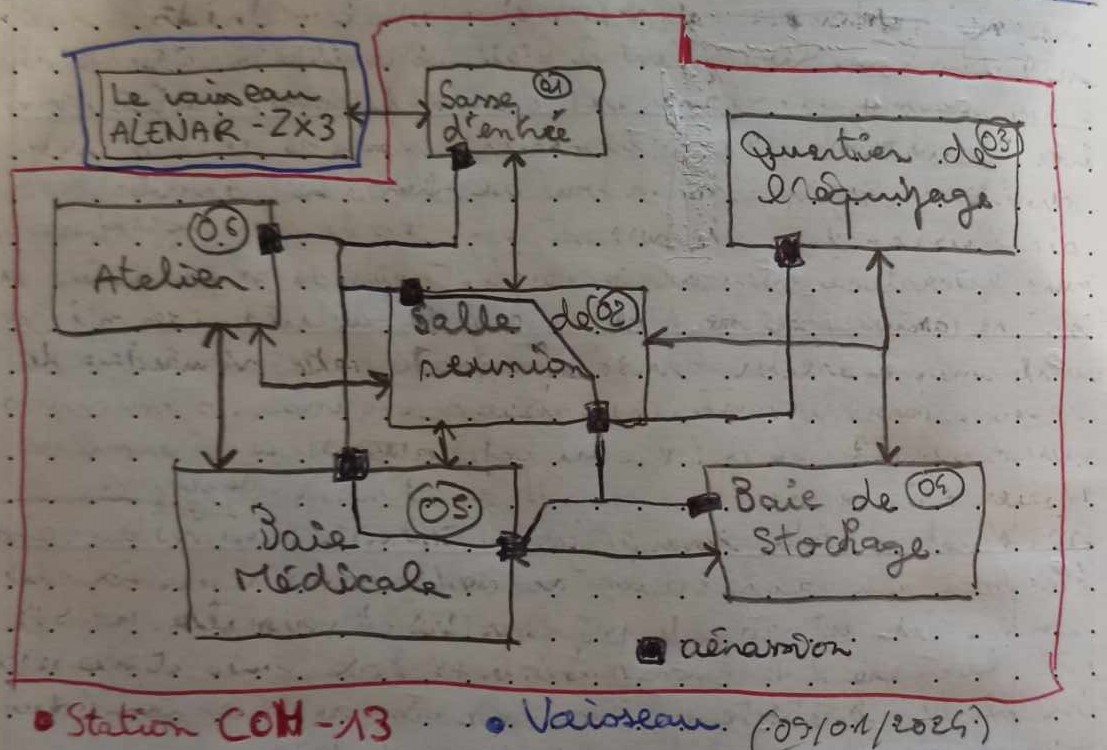 Le vaisseau
ALENAR-ZX3
Sasse 01
d'entrée
Quartier de 03
l'équipage
06
Atelier
Salle de 02
reunion
05
Baie
Médicale
Baie de 04
Stockage.
aération
• Station COM-13 • Vaisseau. (09/01/2024)